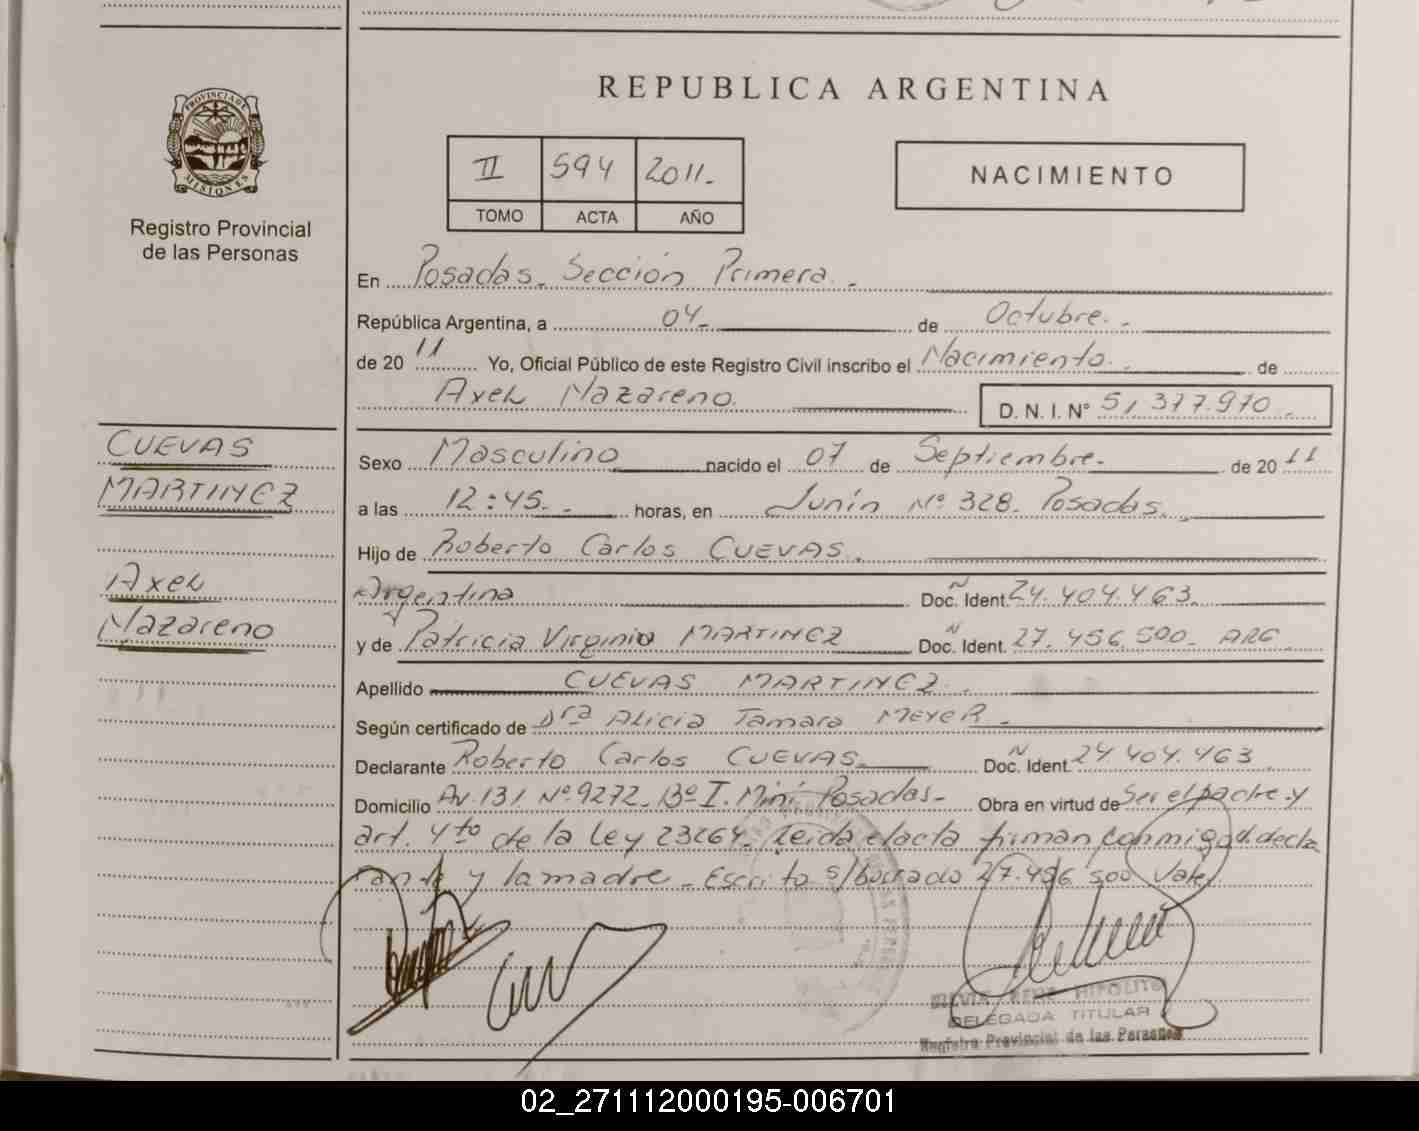 REPUBLICA ARGENTINA
PROVINCIA DE
MISIONES
Registro Provincial
de las Personas
II 594 2011.-
TOMO ACTA AÑO
NACIMIENTO
En Posadas. Sección Primera.-
República Argentina, a 04- de Octubre.-
de 2011 Yo, Oficial Público de este Registro Civil inscribo el Nacimiento. de
Axel Nazareno. D. N. I. N° 51,377.970.-
CUEVAS
MARTINEZ
Axel
Nazareno
Sexo Masculino nacido el 07 de Septiembre.- de 2011
a las 12:45.- horas, en Junín N° 328. Posadas.-
Hijo de Roberto Carlos CUEVAS.
Argentina Doc. Ident. Ñ 24.404.463.
y de Patricia Virginia MARTINEZ Doc. Ident. Ñ 27.456.500- ARG.
Apellido CUEVAS MARTINEZ.-
Según certificado de Drª Alicia Tamara MEYER.-
Declarante Roberto Carlos CUEVAS. Doc. Ident. Ñ 24.404.463
Domicilio Av. 131 N° 9272. Bº I. Mini Posadas- Obra en virtud de Ser el padre y
art. 4to de la Ley 23264. Leida el acta firman conmigo el decla
rante y la madre - Escrito s/borrado 27.456.500 Vale
HIPOLITO
DELEGADA TITULAR
Registro Provincial de las Personas
02_271112000195-006701